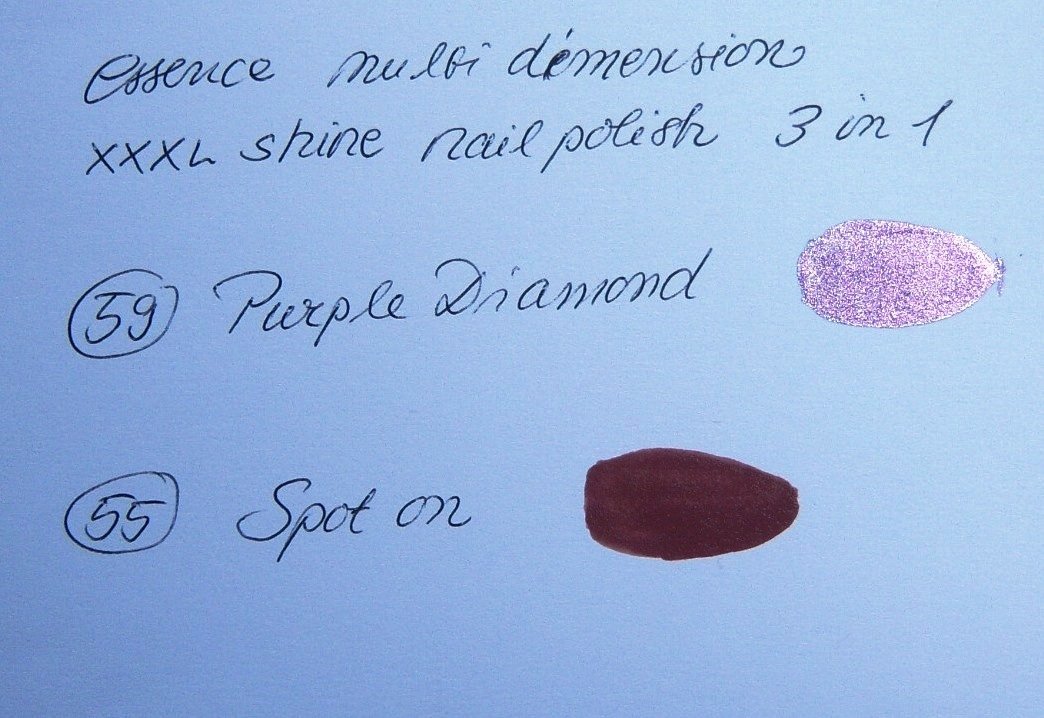 essence multi dimension
XXXL shine nail polish 3 in 1
59 Purple Diamond
55 Spot on